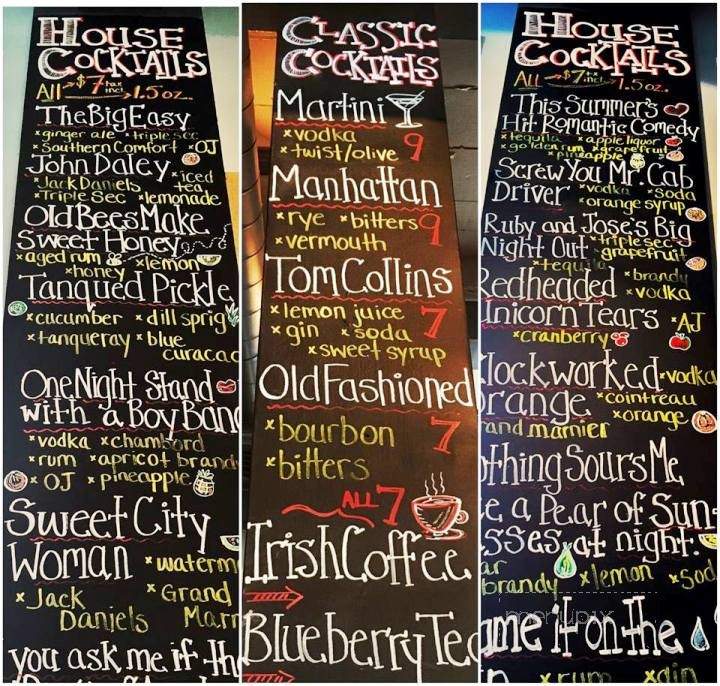 House
Cocktails
All $7 tax incl. 1.5 oz.
The Big Easy
x ginger ale x triple sec
x Southern Comfort x OJ
John Daley x iced tea
x Jack Daniels
x Triple Sec x lemonade
Old Bees Make
Sweet Honey
x aged rum x lemon
x honey
Tanqued Pickle
x cucumber x dill sprig
x tanqueray x blue
curacao
One Night Stand
with a Boy Band
x vodka x chambord
x rum x apricot brand
x OJ x pineapple
Sweet City
Woman x waterm
x Jack Daniels x Grand Marn
you ask me if th
Classic
Cocktails
Martini
x vodka 9
x twist/olive
Manhattan
x rye x bitters 9
x vermouth
Tom Collins
x lemon juice 7
x gin x soda
x sweet syrup
Old Fashioned
x bourbon 7
x bitters
All 7
Irish Coffee
Blueberry Tea
House
Cocktails
All $7 tax incl. 1.5 oz.
This Summer's
Hit Romantic Comedy
x tequila x apple liquor
x golden rum x grapefruit
x pineapple
Screw You Mr. Cab
Driver x vodka x soda
x orange syrup
Ruby and Jose's Big
Night Out x triple sec
x grapefruit
x tequila
Redheaded x brandy
x vodka
Unicorn Tears x AJ
x cranberry
lockworked x vodka
Orange x cointreau
x orange
rand marnier
othing Sours Me
e a Pear of Sun-
sses at night.
ar
brandy x lemon x sod
ame it on the
x rum x gin
menupix